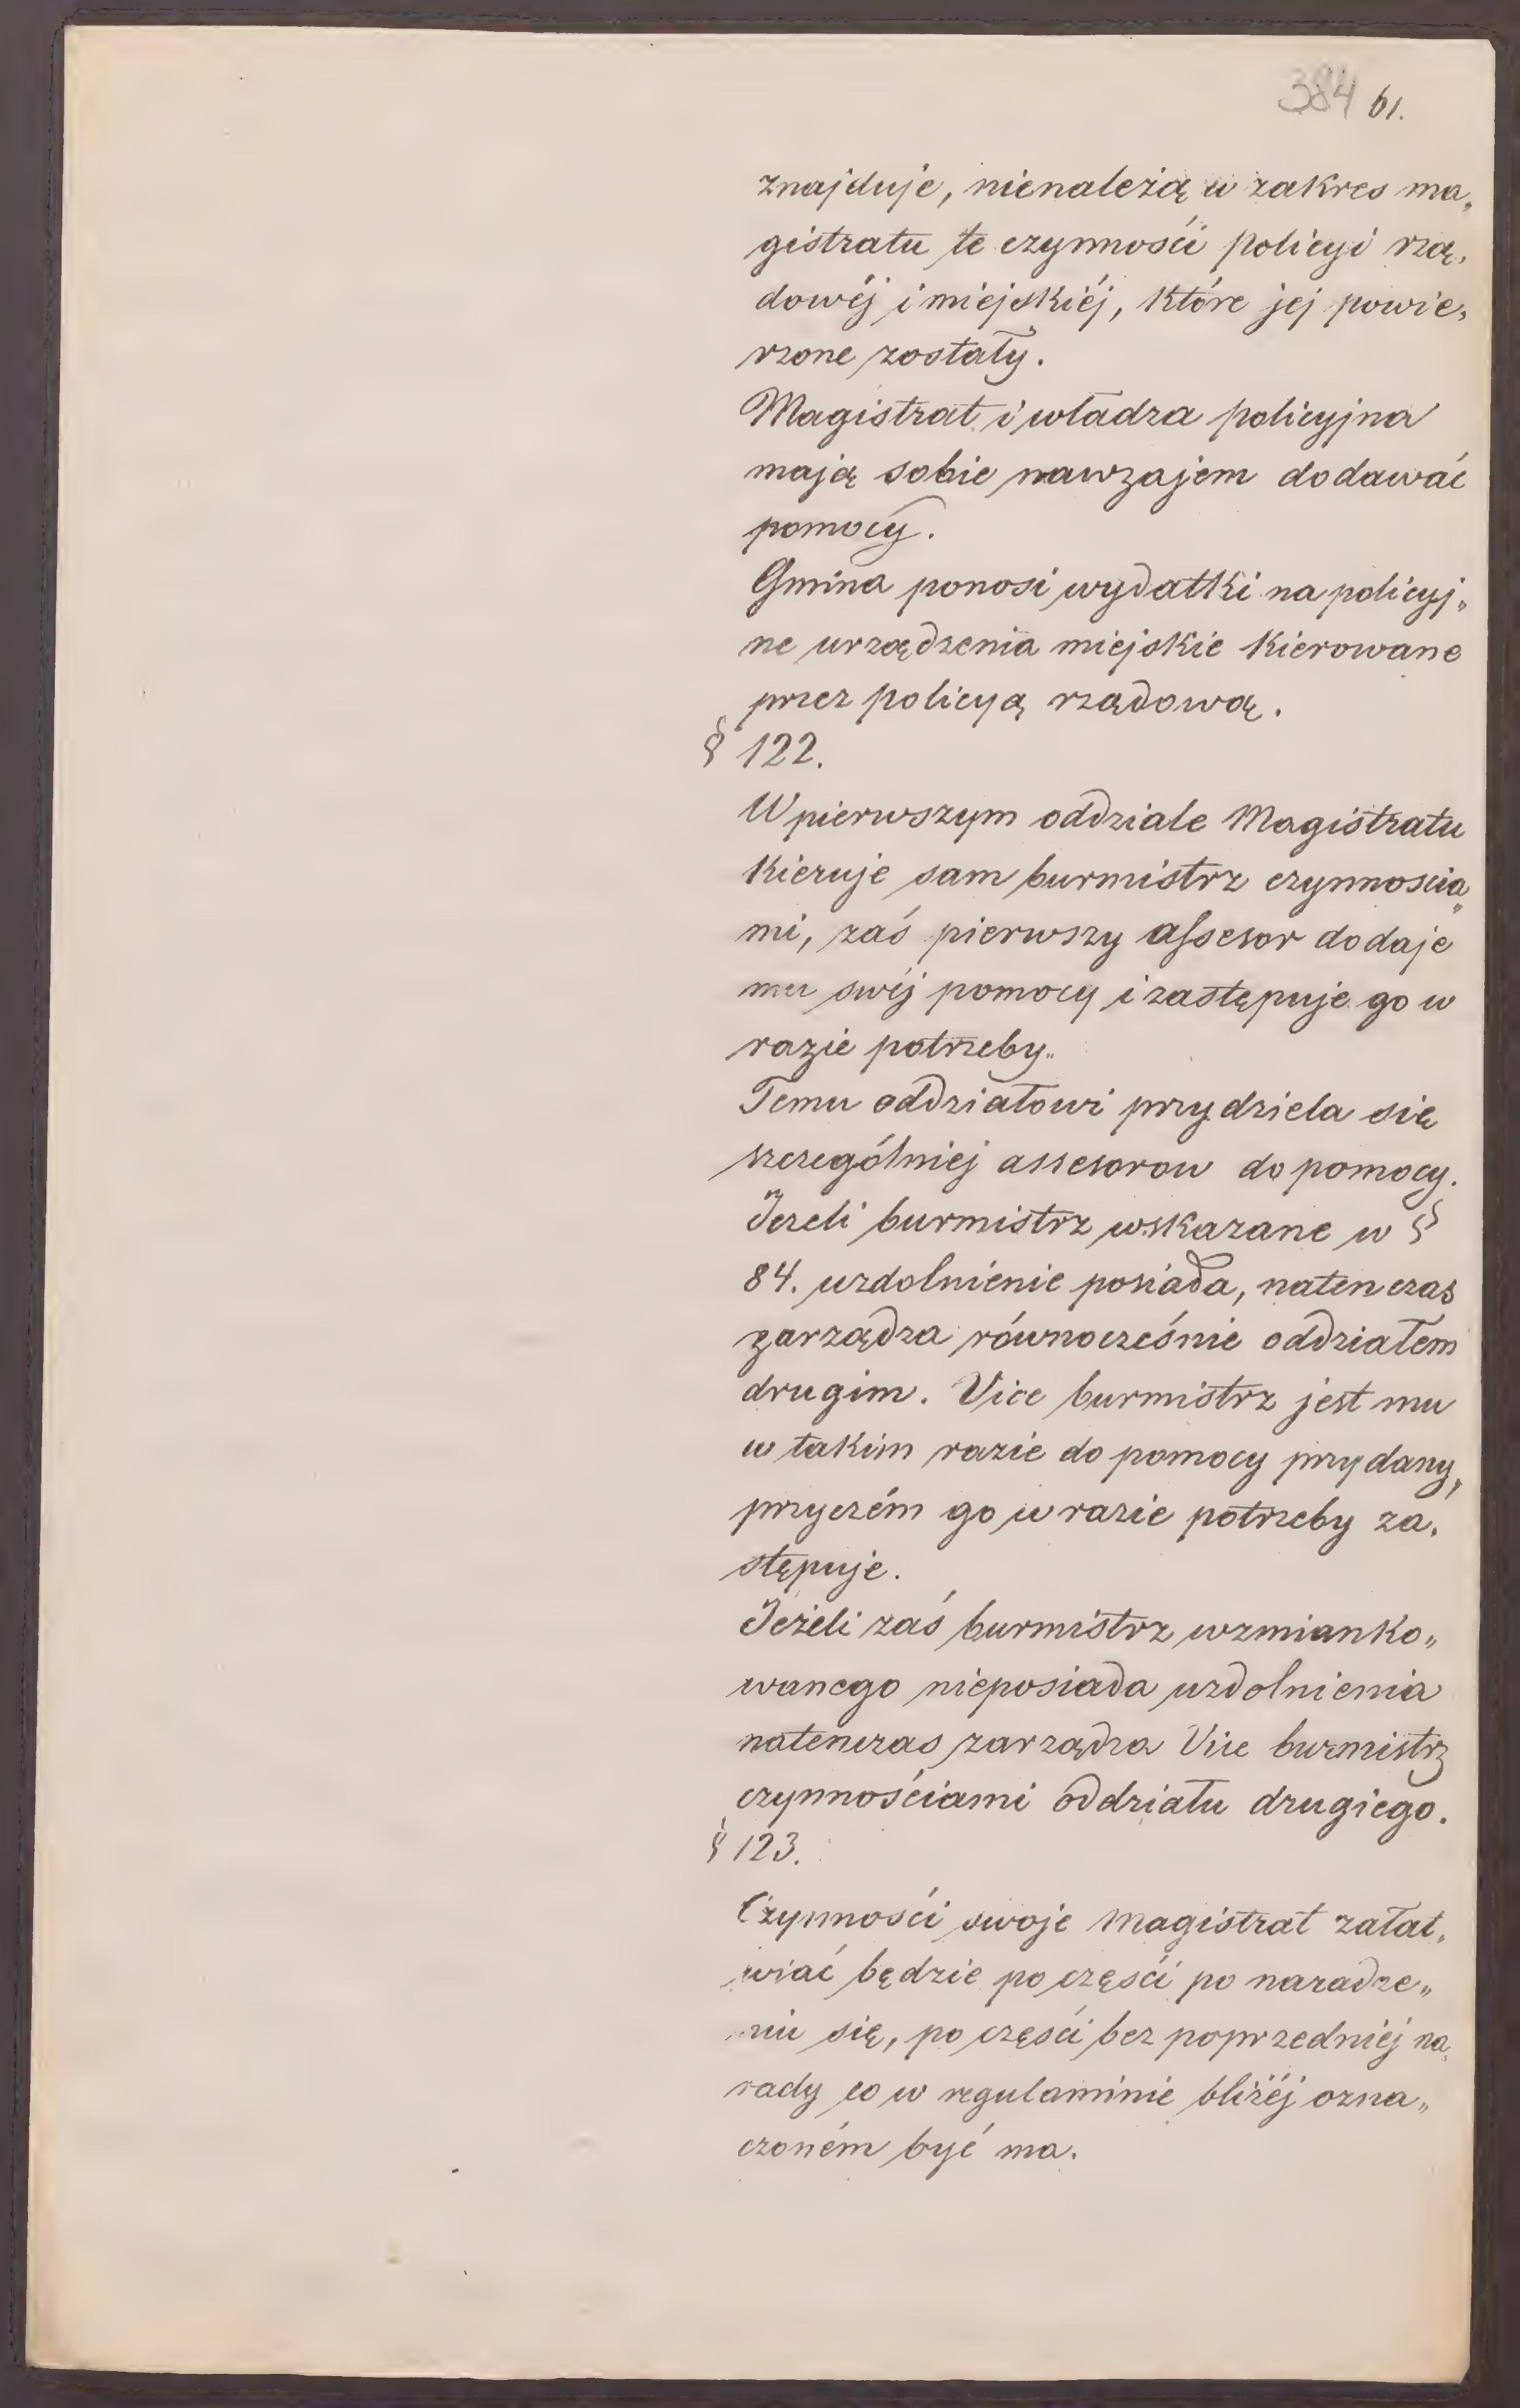 384 61.
znajduje, nienależą w zakres ma„
gistratu te czynności policyi rzą„
dowéj i miejskiéj, które jej powie„
rzone zostały.
Magistrat i władza policyjna
mają sobie nawzajem dodawać
pomocy.
Gmina ponosi wydatki na policyj„
ne urządzenia miejskie kierowane
przez policyą rządową.
§ 122.
W pierwszym oddziale Magistratu
kieruje sam burmistrz czynnościa„
mi, zaś pierwszy assesor dodaje
mu swéj pomocy i zastępuje go w
razie potrzeby.
Temu oddziałowi przydziela się
szczególniej assesorow do pomocy.
Jezeli burmistrz wskazane w §
84. uzdolnienie posiada, natenczas
zarządza równocześnie oddziałem
drugim. Vice burmistrz jest mu
w takim razie do pomocy przydany,
przyczém go w razie potrzeby za„
stępuje.
Jeżeli zaś burmistrz wzmianko„
wanego nieposiada uzdolnienia
natenczas zarządza Vice burmistrz
czynnościami oddziału drugiego.
§ 123.
Czynności swoje magistrat załat„
wiać będzie po części po naradze„
niu się, po części bez poprzedniéj na„
rady co w regulaminie bliżéj ozna„
czoném być ma.